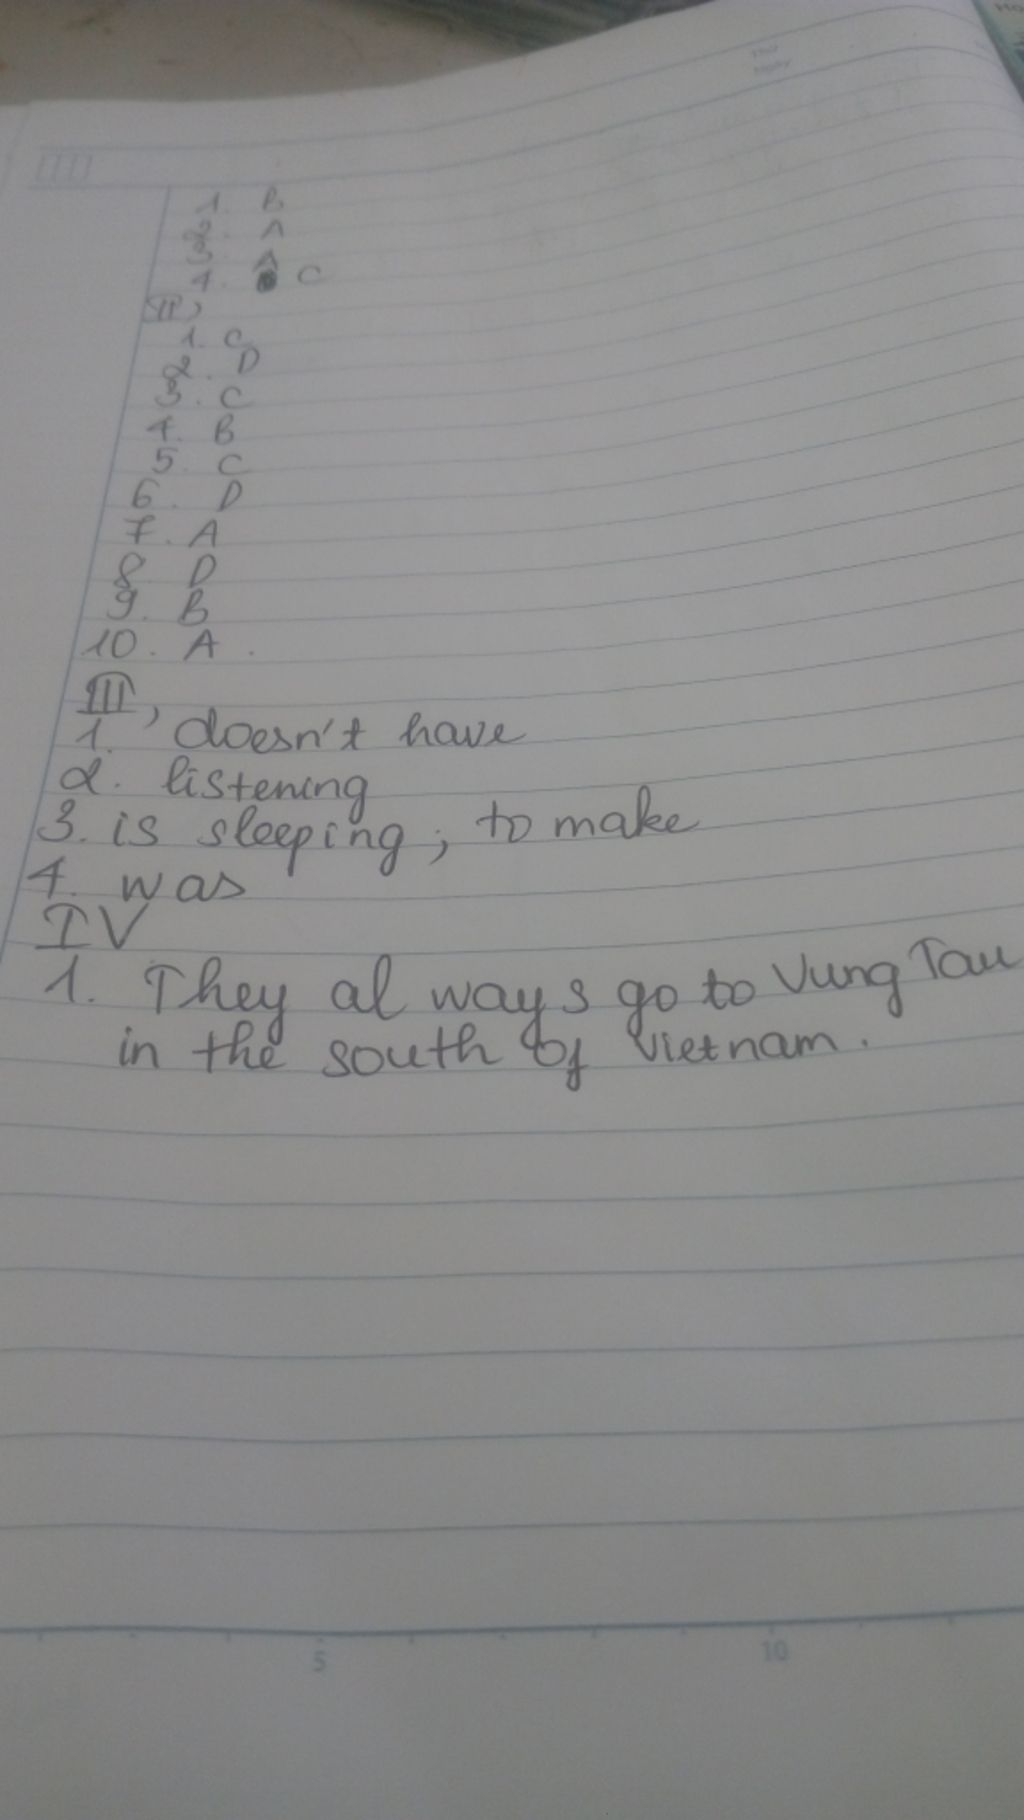 1. B
2. A
3. A
4. C
II,
1. C
2. D
3. C
4. B
5. C
6. D
7. A
8 D
9. B
10. A.
III,
1. doesn't have
2. listening
3. is sleeping; to make
4. was
IV
1. They always go to Vung Tau
in the south of Vietnam.
5 10